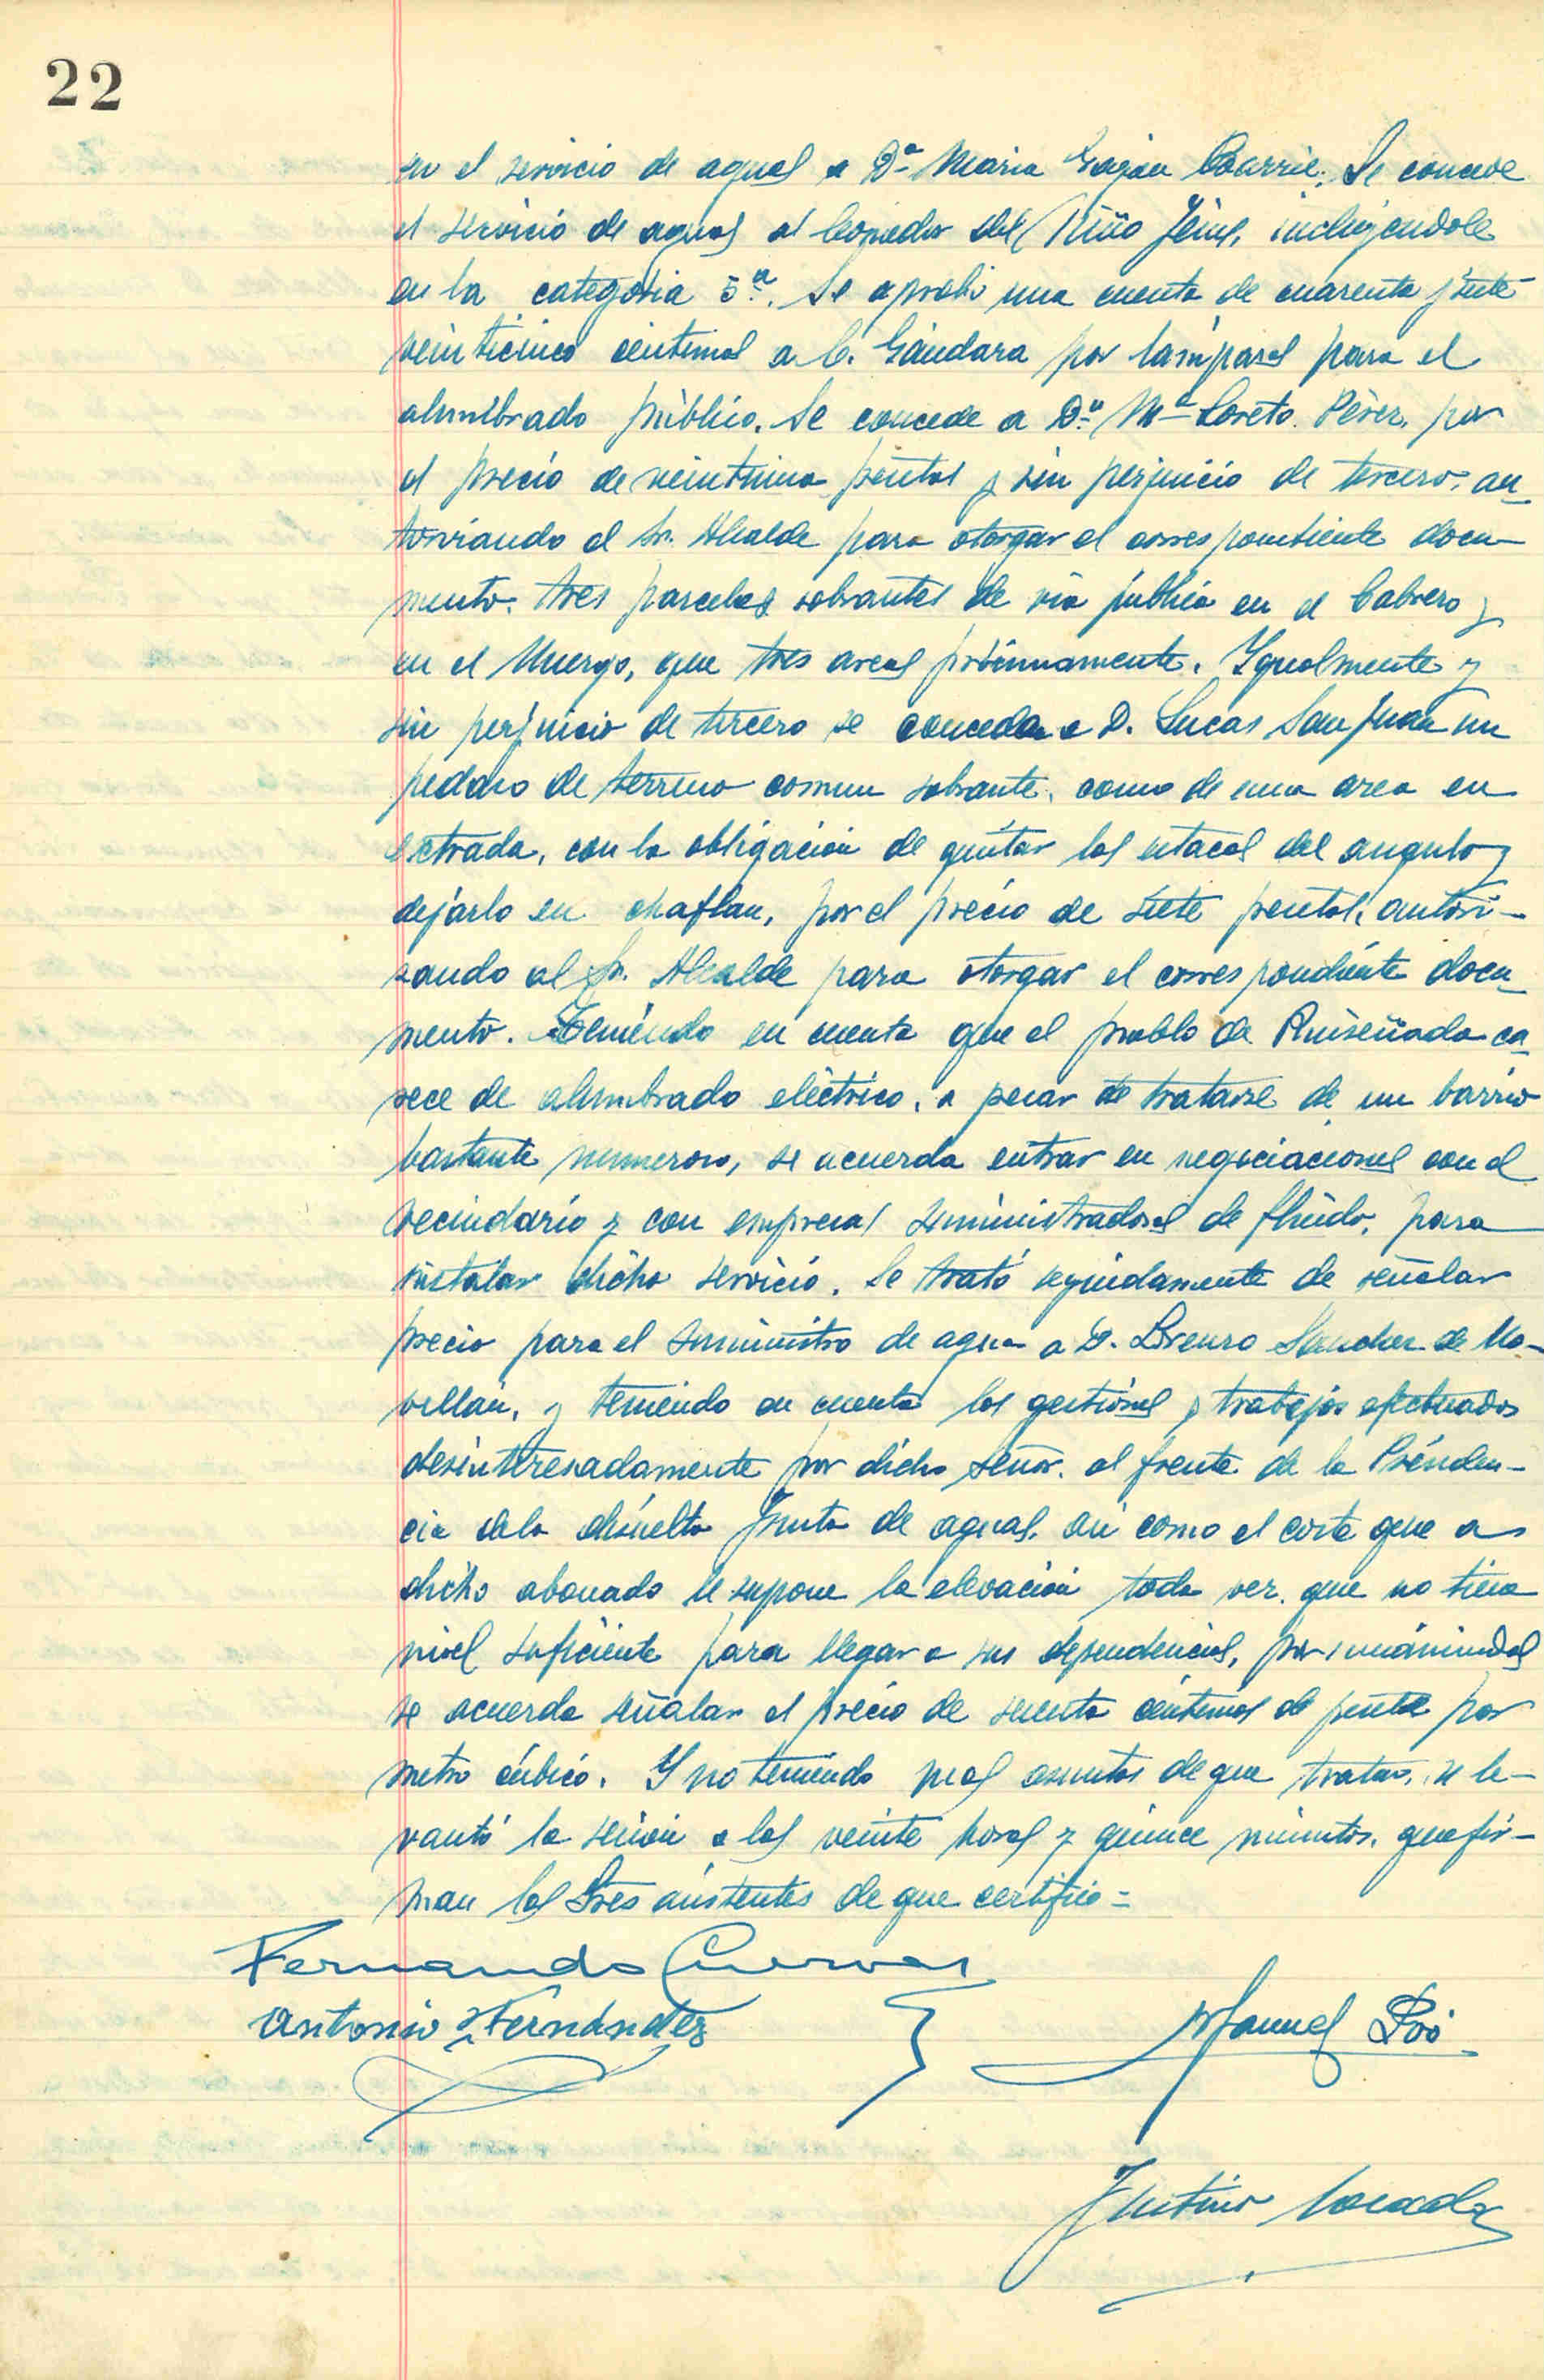 22
en el servicio de aguas a Dª Maria Gajáu Barrie. Se concede
el servicio de aguas al Comedor del Niño Jesus, incluyendole
en la categoria 5ª. Se aprobó una cuenta de cuarenta y siete
veinticinco centimos a C. Gándara por lámparas para el
alumbrado público. Se concede a Dª Mª Loreto Pérez, por
el precio de veintiuna pesetas y sin perjuicio de tercero, au-
torizando el Sr. Alcalde para otorgar el correspondiente docu-
mento, tres parcelas sobrantes de via pública en el Cabrero y
en el Muergo, que tres areas próximamente. Igualmente y
sin perjuicio de tercero se conceda a D. Lucas San Juan un
pedazo de terreno comun sobrante, como de una area en
estrada, con la obligación de quitar las estacas del angulo y
dejarlo en chaflan, por el precio de siete pesetas, autori-
zando al Sr. Alcalde para otorgar el correspondiente docu-
mento. Teniendo en cuenta que el pueblo de Ruiseñada ca-
rece de alumbrado eléctrico, a pesar de tratarse de un barrio
bastante numeroso, se acuerda entrar en negociaciones con el
vecindario y con empresas suministradoras de fluido, para
instalar dicho servicio. Se trató seguidamente de señalar
precio para el suministro de agua a D. Lorenzo Sanchez de Mo-
vellán, y teniendo en cuenta las gestiones y trabajos efectuados
desinteresadamente por dicho señor, al frente de la Presiden-
cia de la disuelta Junta de aguas, asi como el coste que a
dicho abonado le supone la elevación toda vez que no tiene
nivel suficiente para llegar a sus dependencias, por unanimidad
se acuerda señalar el precio de sesenta centimos de peseta por
metro cúbico. Y no teniendo mas asuntos de que tratar, se le-
vantó la sesión a las veinte horas y quince minutos, que fir-
man los Sres asistentes de que certifico=
Fernando Cuevas
Antonio Fernández
Manuel Poó
Justino